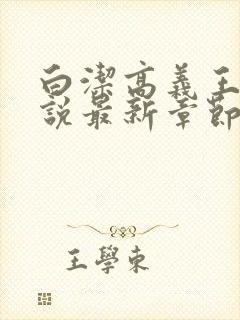 白潔高義王
說最新章節
王學東